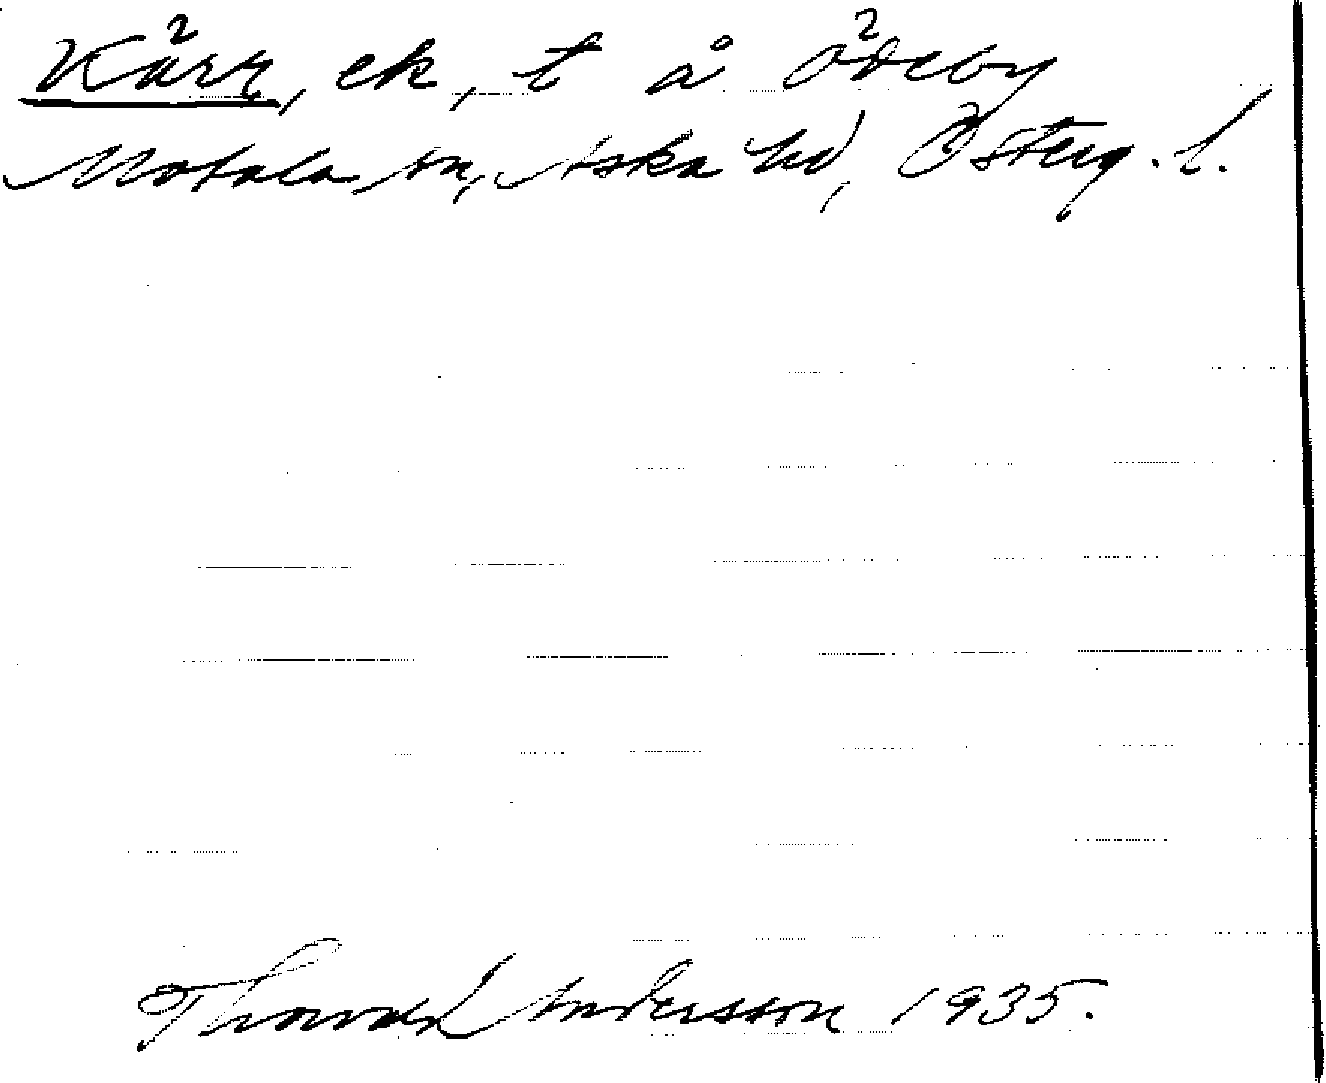 Kärr, ek, t å Ödeby
Motala sn, Aska hd, Österg. l.
Thorvald Andersson 1935.